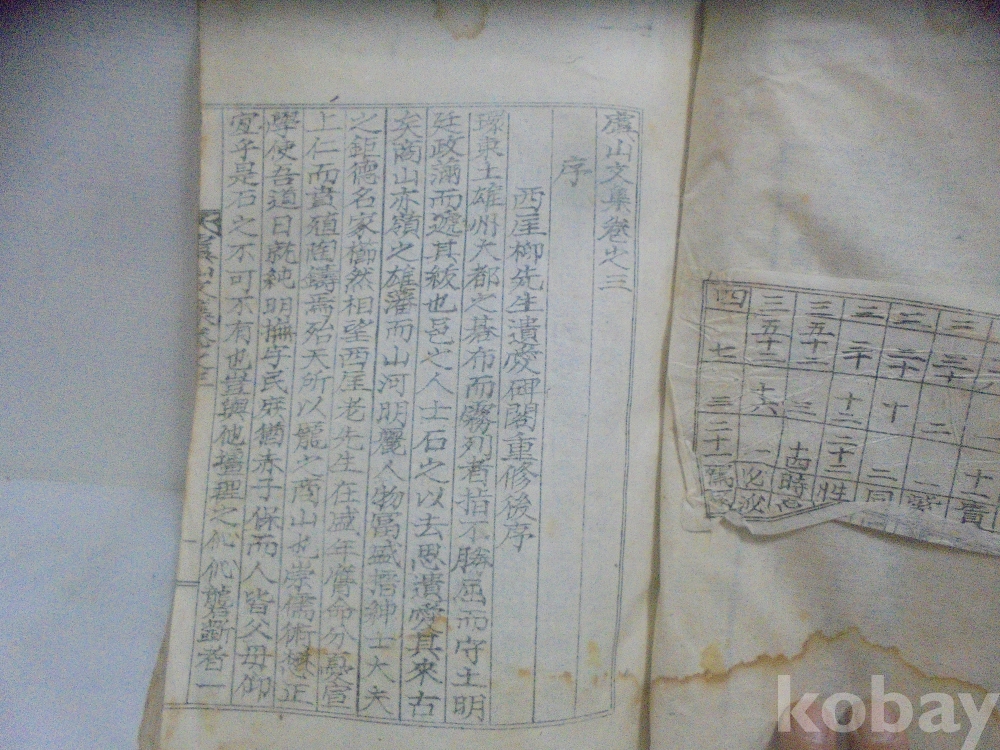 虞山文集卷之三
序
西厓柳先生遺愛碑閣重修後序
環東土雄州大都之碁布而霧列者指不勝屈而守土明
廷政滿而遞其級也邑之人士石之以去思遺愛其來古
矣商山亦嶺之雄藩而山河明麗人物富盛搢紳士大夫
之鉅德名家櫛然相望西厓老先生在盛年膺命分憂宣
上仁而畵殖陶鑄焉殆天所以寵之商山也崇儒術懋正
學使吾道日就純明撫字民庶猶赤子保而人皆父母仰
宜乎是石之不可不有也豈與他壇理之代代磨斲者一
四 七 三 二十一
三 五十二 十六 一 必泌
三 五十二 三 十四 時
三 二十 十二 二十二 性
二 三十 十 二 同
三 三十 二 一
一 十二 賓
kobay